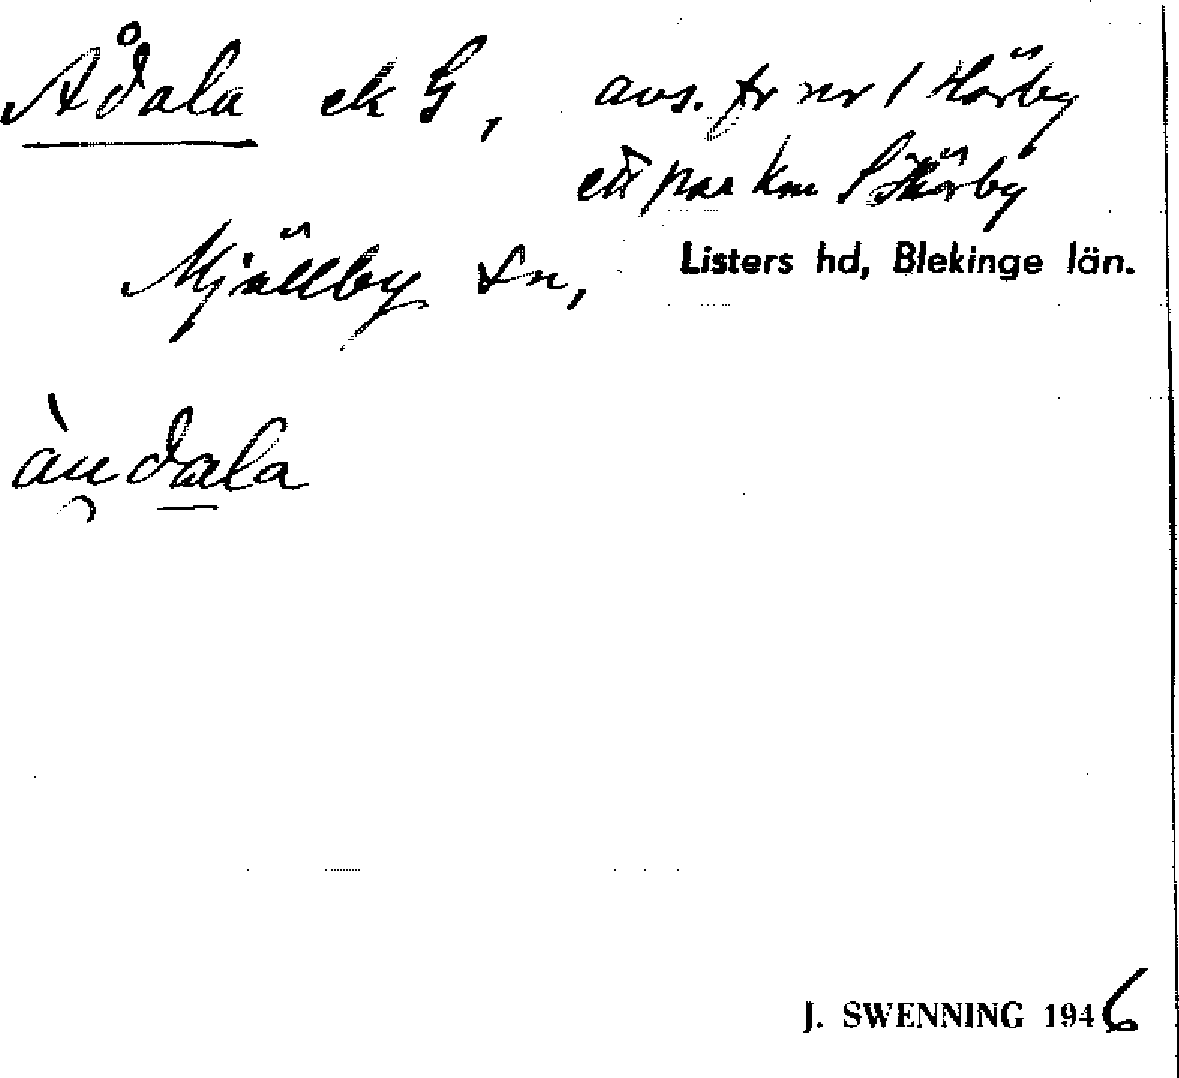 Ådala ek G, avs. fr nr 1 Hörby
ett par km S Hörby
Mjällby sn, Listers hd, Blekinge län.
àudala
J. SWENNING 1946